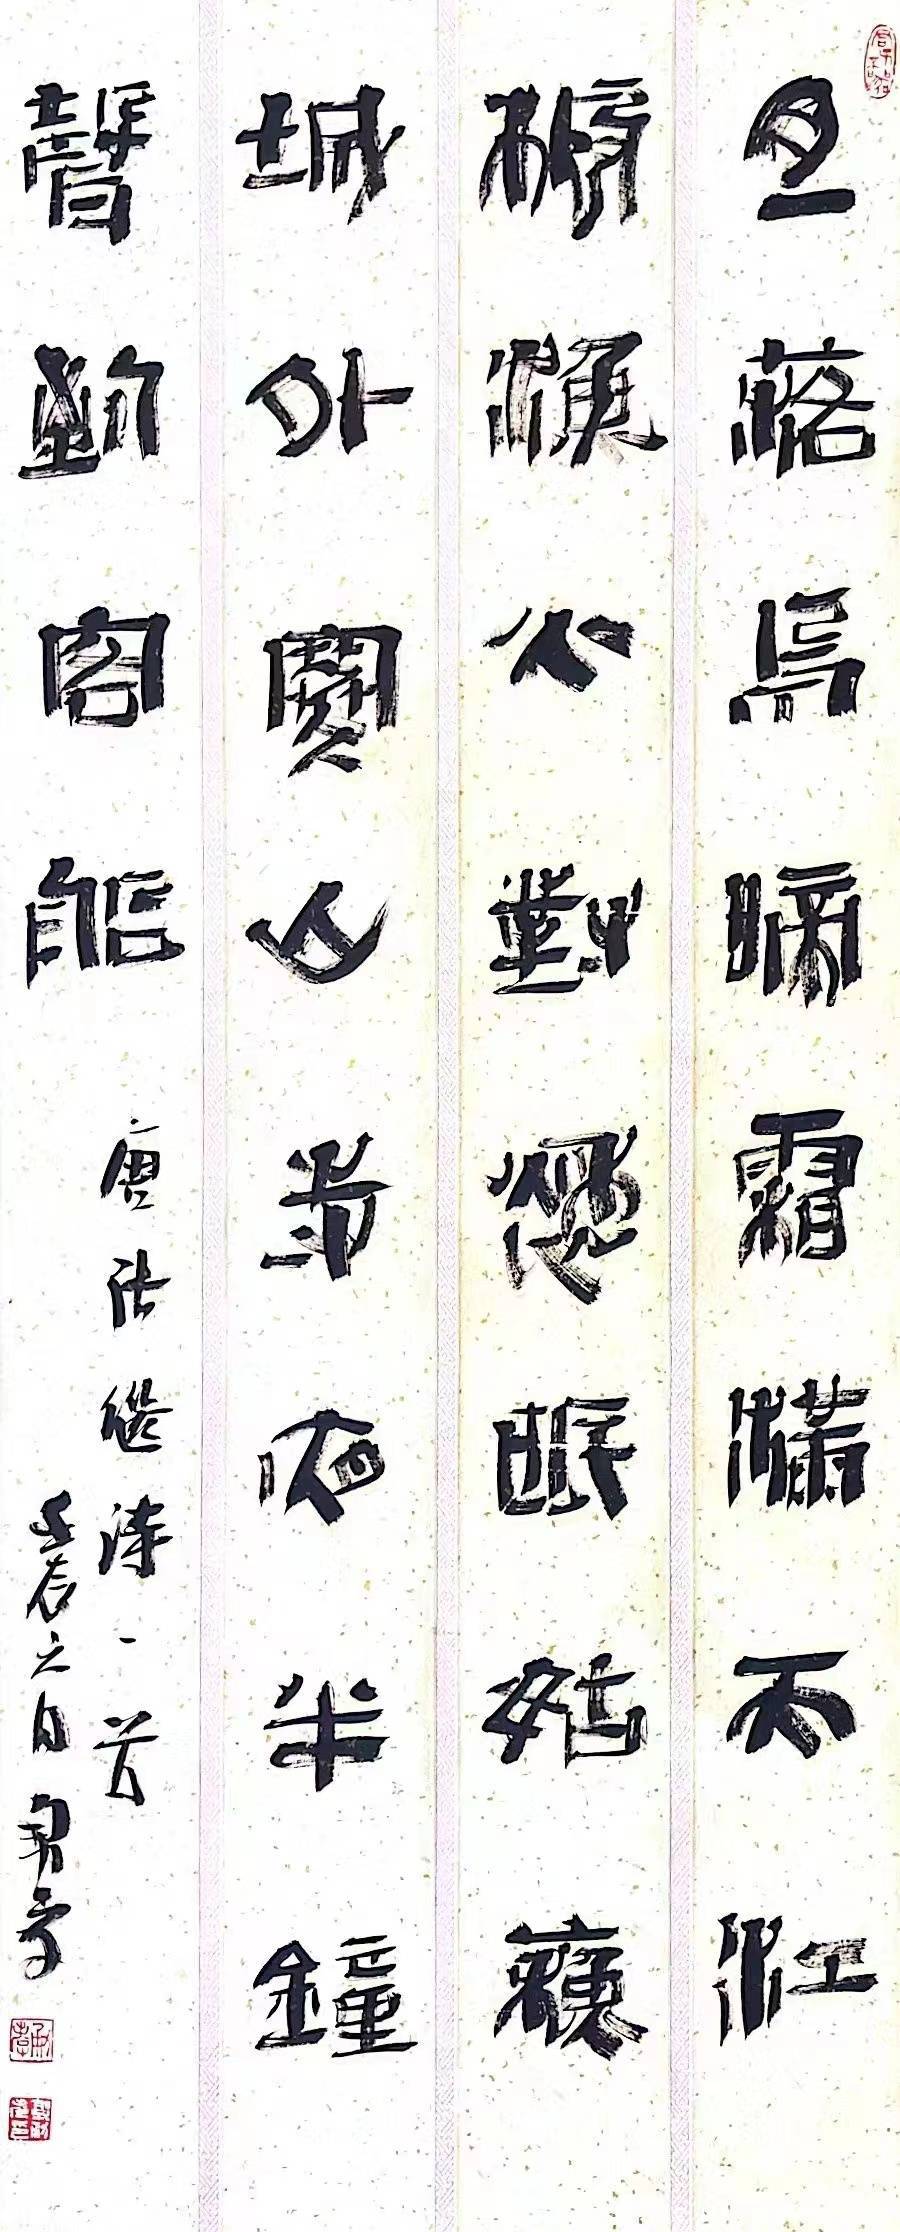 月落烏啼霜滿天江
楓漁火對愁眠姑蘇
城外寒山寺夜半鐘
聲到客船
唐張繼詩一首
壬辰之